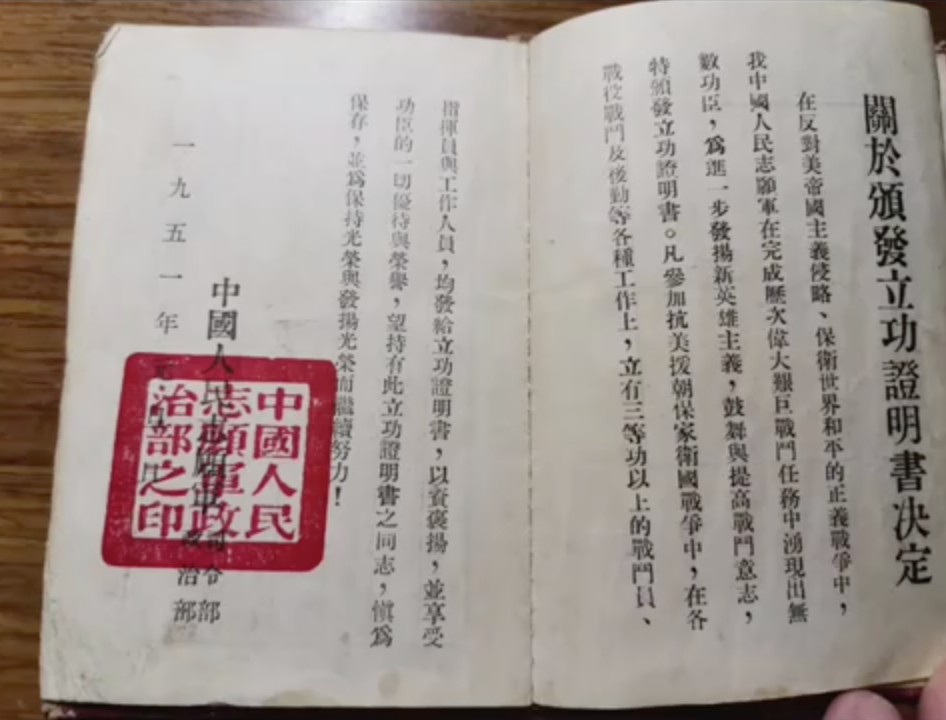 關於頒發立功證明書决定
在反對美帝國主義侵略、保衛世界和平的正義戰爭中，
我中國人民志願軍在完成歷次偉大艱巨戰鬥任務中湧現出無
數功臣，爲進一步發揚新英雄主義，鼓舞與提高戰鬥意志，
特頒發立功證明書。凡參加抗美援朝保家衛國戰爭中，在各
戰役戰鬥及後勤等各種工作上，立有三等功以上的戰鬥員、
指揮員與工作人員，均發給立功證明書，以資褒揚，並享受
功臣的一切優待與榮譽，望持有此立功證明書之同志，愼爲
保存，並爲保持光榮與發揚光榮而繼續努力！
中國人民志願軍
司令部
政治部
一九五一年
中國人民
志願軍政
治部之印